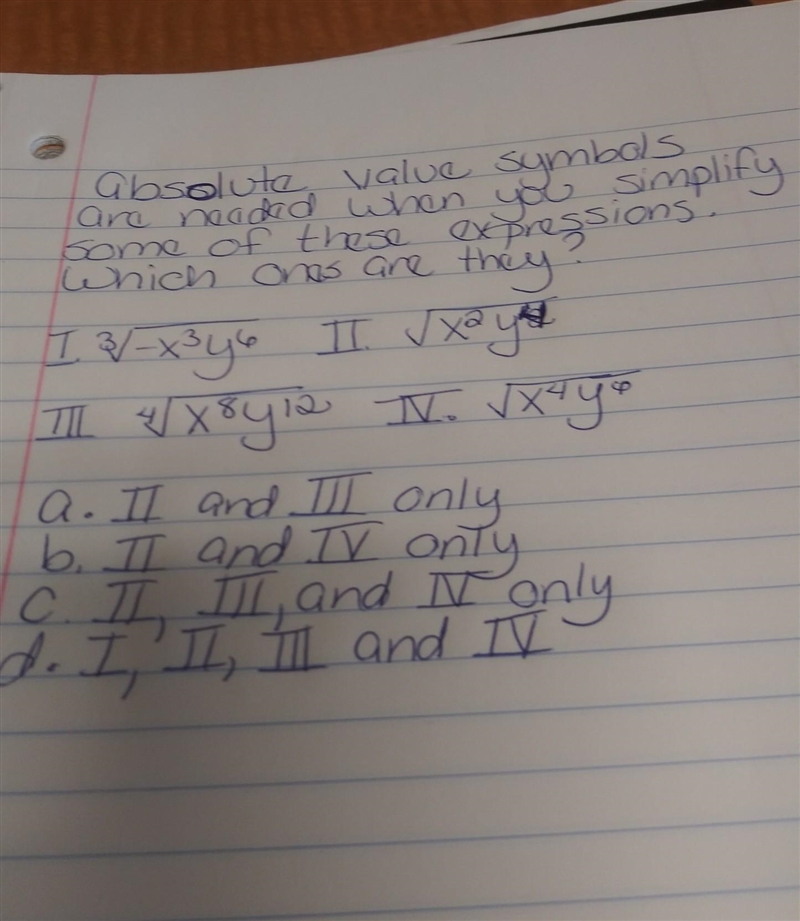 Absolute value symbols
are needed when you simplify
some of these expressions.
Which ones are they?
I. ∛-x³y⁶ II. √x²y⁴
III ∜x⁸y¹² IV. √x⁴y⁶
a. II and III only
b. II and IV only
c. II, III, and IV only
d. I, II, III and IV